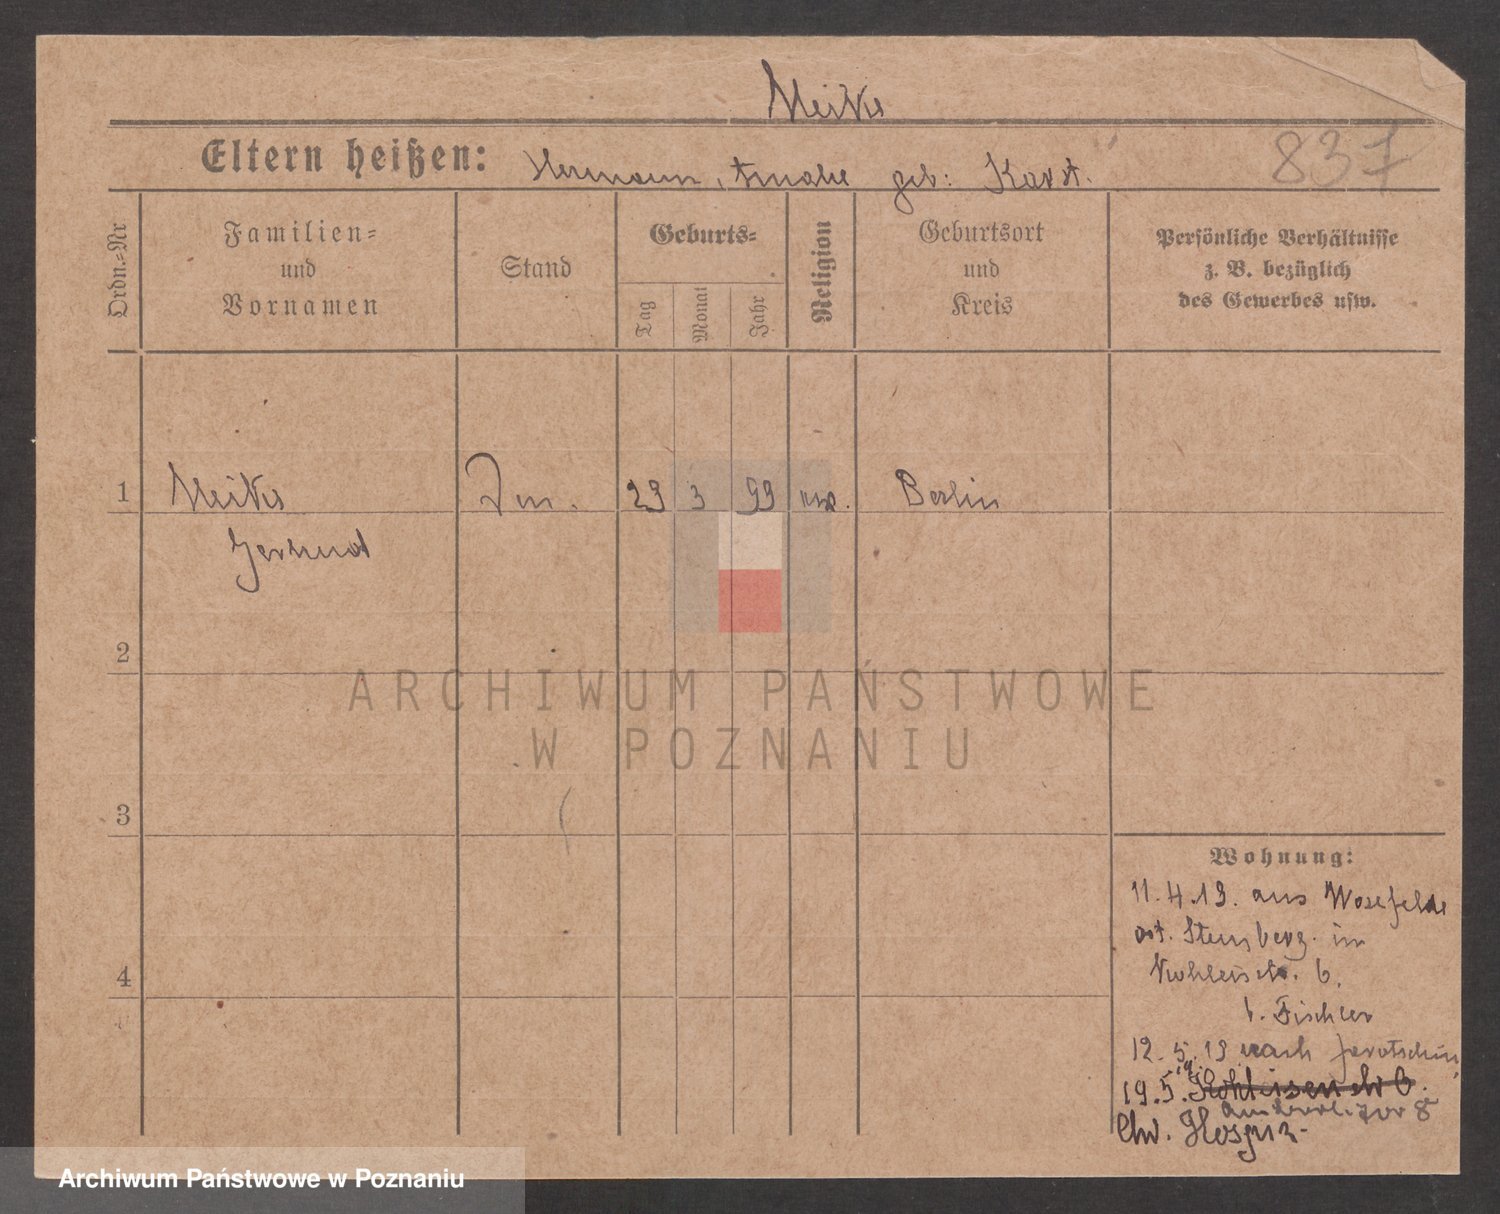 Meike
Eltern heißen: Hermann, Amalie geb: Karst.
837
Ordn.=Nr
Familien=
und
Vornamen
Stand
Geburts=
Tag
Monat
Jahr
Religion
Geburtsort
und
Kreis
Persönliche Verhältnisse
z. B. bezüglich
des Gewerbes usw.
1 Meike 29 3 99 Berlin
Gertrud
2
3
4
Wohnung:
11.4.19. aus
ost. Sternberg. im
6.
b. Fischler
12.5.19 nach Jarotschin
19.5.19.
8
Chr. Hospiz-
ARCHIWUM PAŃSTWOWE
W POZNANIU
Archiwum Państwowe w Poznaniu